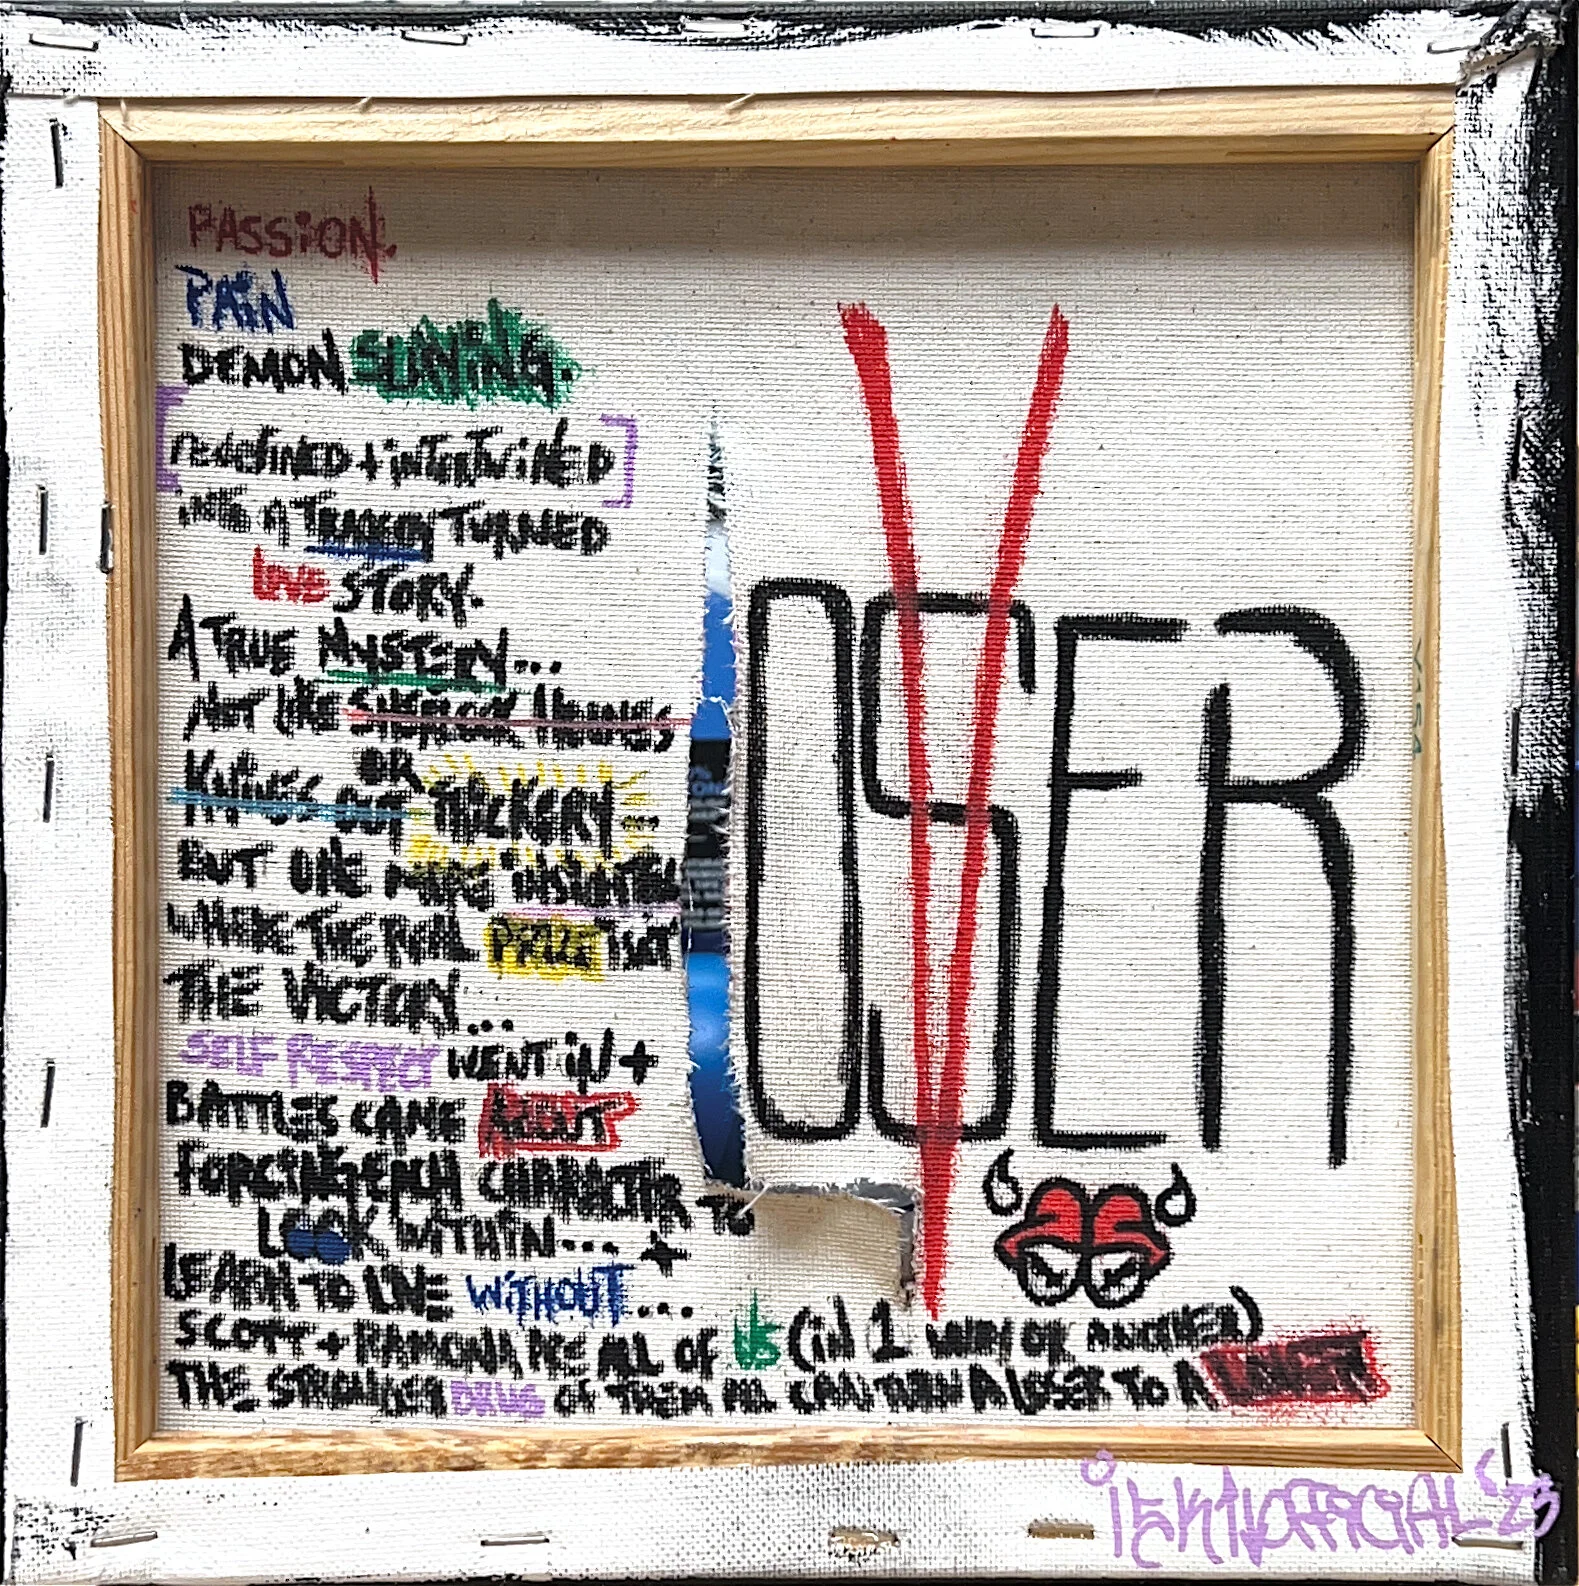 PASSION.
PAIN
DEMON SLAYING.
[redefined + intertwined]
into A Tragedy TURNED
LOVE STORY.
A TRUE MYSTERY...
NOT LIKE SHERLOCK HOLMES
OR
KNIVES OUT TRICKERY...
BUT ONE MORE
WHERE THE REAL PRIZE ISN'T
THE VICTORY...
SELF RESPECT WENT IN +
BATTLES CAME ABOUT
FORCING EACH CHARACTER TO
LOOK WITHIN... +
LEARN TO LIVE WITHOUT...
SCOTT + RAMONA ARE ALL OF US (IN 1 WAY OR ANOTHER)
THE STRONGEST DRUG OF THEM ALL CAN TURN A LOSER TO A LOVER
LOSER
V
iskNOFFICIAL '23